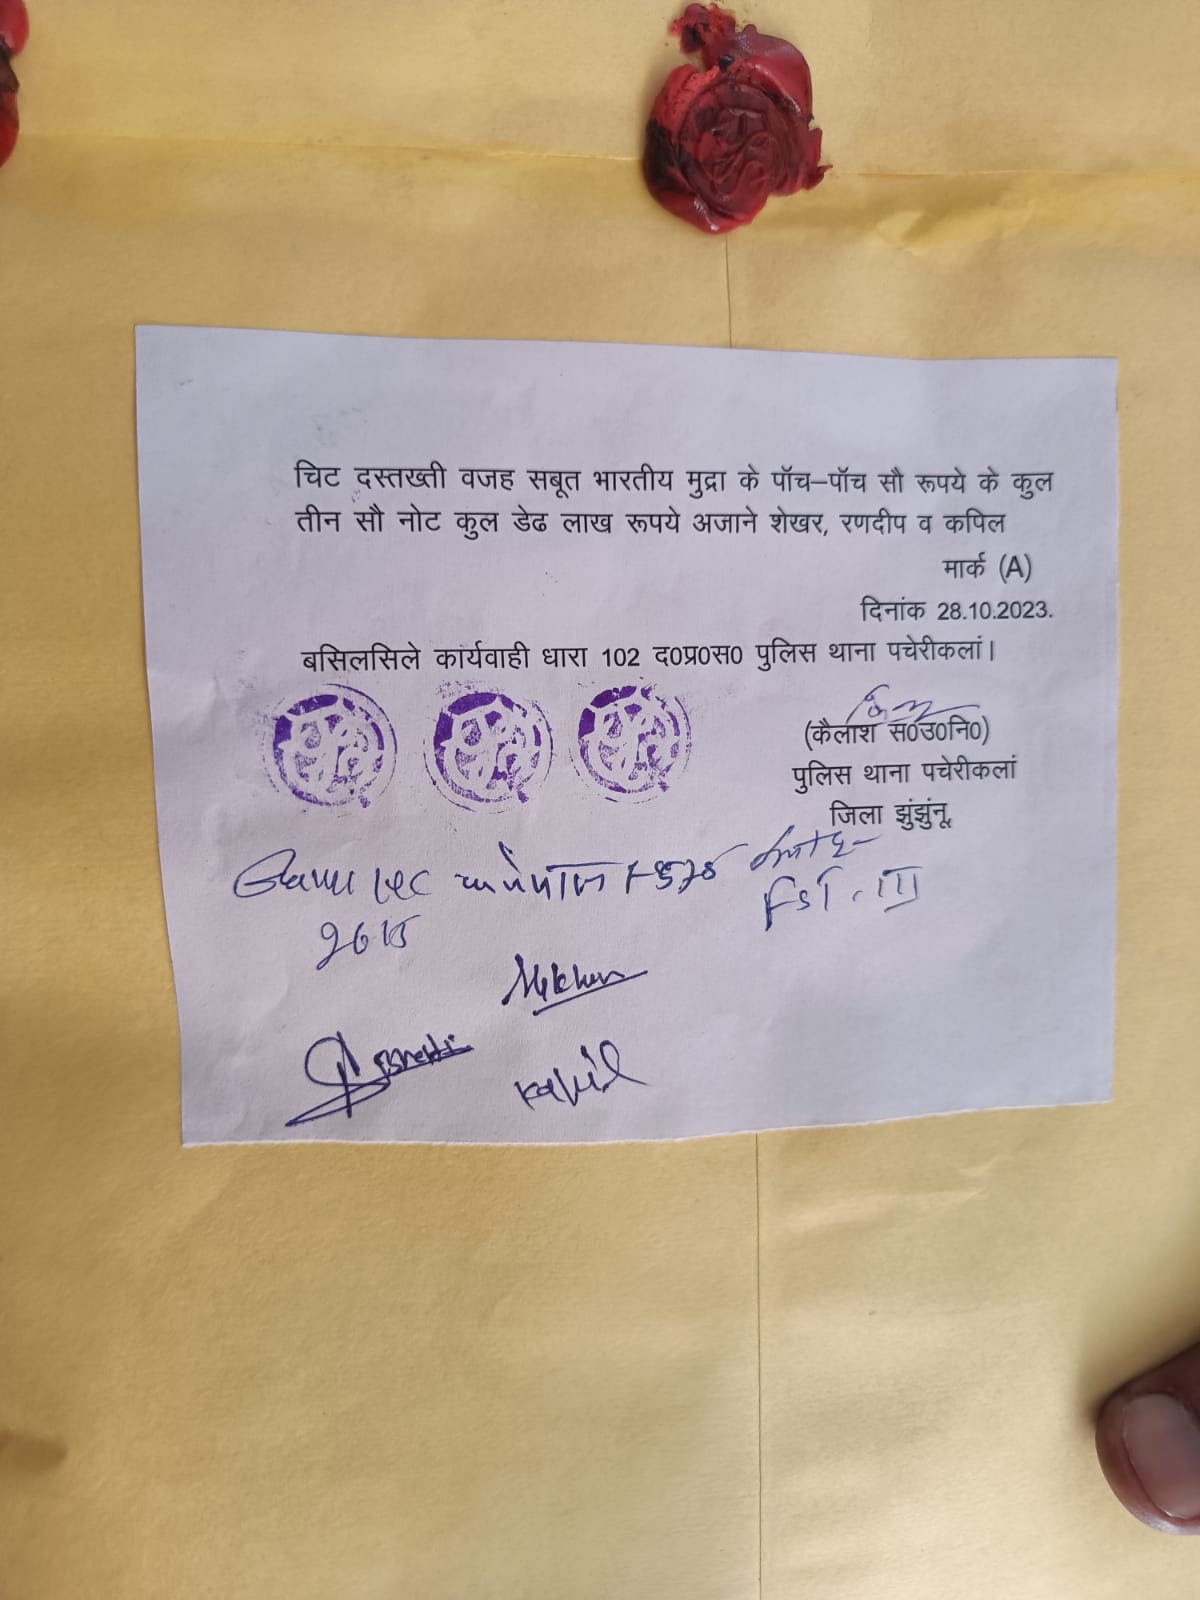 चिट दस्तख्ती वजह सबूत भारतीय मुद्रा के पॉच–पॉच सौ रूपये के कुल
तीन सौ नोट कुल डेढ लाख रूपये अजाने शेखर, रणदीप व कपिल
मार्क (A)
दिनांक 28.10.2023.
बसिलसिले कार्यवाही धारा 102 द0प्र0स0 पुलिस थाना पचेरीकलां।
(कैलाश स0उ0नि0)
पुलिस थाना पचेरीकलां
जिला झुंझुंनू
FST. III
Kapil